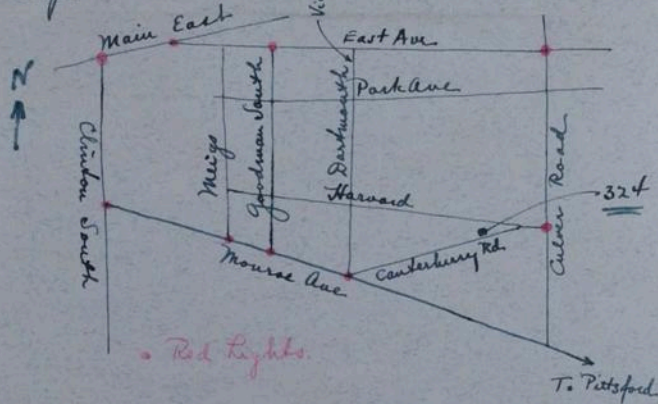 N
Main East
East Ave
Park Ave
Clinton South
Meigs
Goodman South
Dartmouth
Harvard
Culver Road
324
Monroe Ave
Canterbury Rd.
Red Lights.
To Pittsford